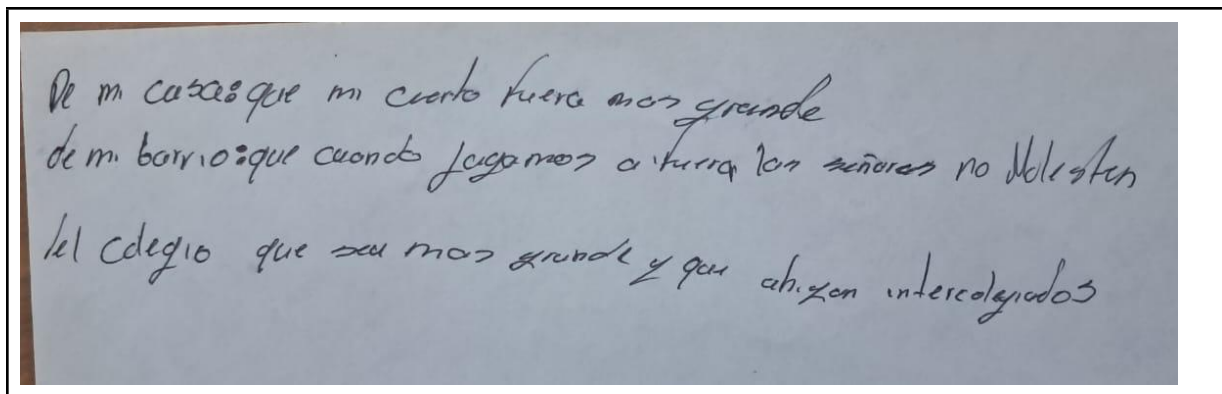 De mi casa: que mi cuarto fuera mas grande
de mi barrio: que cuando jugamos a fuera los señores no Molesten
del colegio que sea mas grande y que ahigan intercolegiados